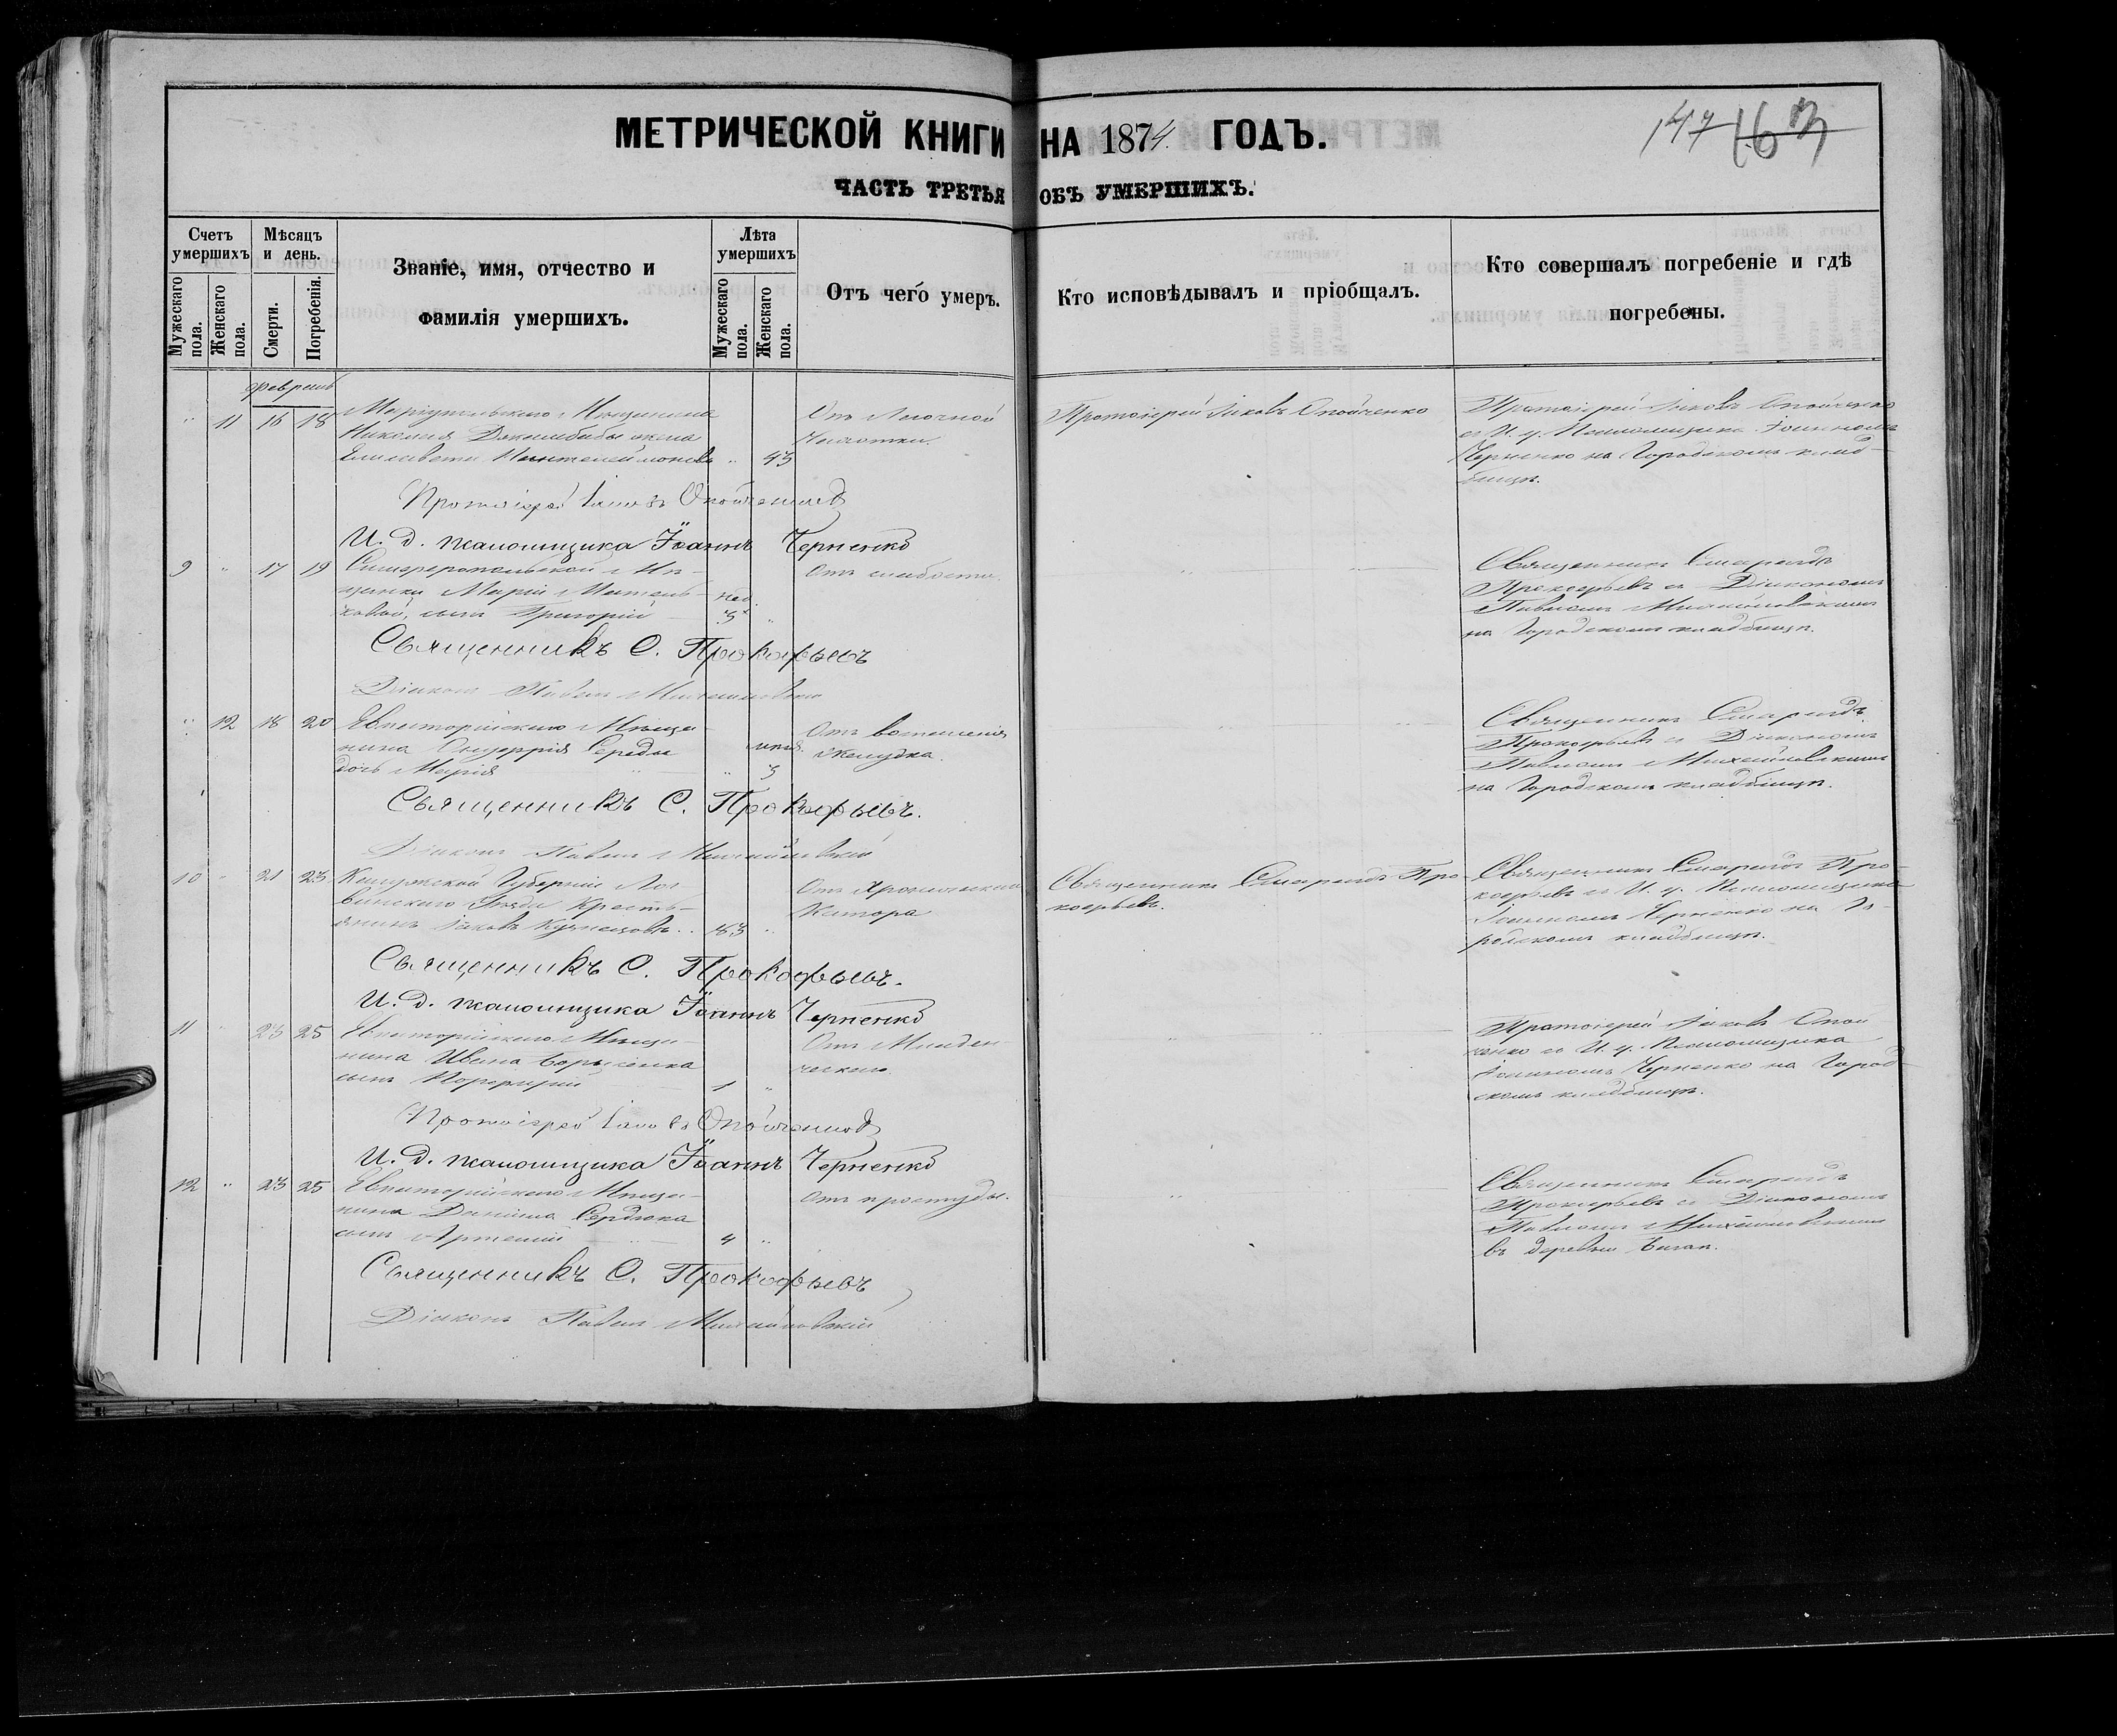 147 163
МЕТРИЧЕСКОЙ КНИГИ НА 1874 ГОДЪ.
ЧАСТЬ ТРЕТЬЯ ОБЪ УМЕРШИХЪ.
Счетъ умершихъ
Мужескаго пола.
Женскаго пола.
Мѣсяцъ и день.
Смерти.
Погребенія.
Званіе, имя, отчество и
фамилія умершихъ.
Лѣта умершихъ
Мужескаго пола.
Женскаго пола.
Отъ чего умеръ.
Кто исповѣдывалъ и пріобщалъ.
Кто совершалъ погребеніе и гдѣ
погребены.
февраль
11 16 18 Маріупольскаго Мѣщанина
Николая жена
Елисавета 43
Отъ Легочной
чахотки.
Протоіерей Іаковъ Опойченко
Протоіерей Іаковъ Опойченко
съ И. д. Псаломщика Іоанномъ
Черненко на Городскомъ клад-
бищѣ.
Протоіерей Іаковъ Опойченко
И. д. псаломщика Іоаннъ Черненко
9 17 19 Симферопольской Мѣ-
щанки Маріи
сынъ Григорій нед. 3
Отъ слабости.
Священникъ Смарагдъ
Прокофьевъ съ Діакономъ
Павломъ Михайловскимъ
на Городскомъ кладбищѣ.
Священникъ С. Прокофьевъ
Діаконъ Павелъ Михайловскій
12 18 20 Евпаторійскаго Мѣща-
нина Середы
дочь Марія 3
Отъ воспаленія
желудка.
Священникъ Смарагдъ
Прокофьевъ съ Діакономъ
Павломъ Михайловскимъ
на Городскомъ кладбищѣ.
Священникъ С. Прокофьевъ.
Діаконъ Павелъ Михайловскій
10 21 23 Калужской Губерніи Лих-
винскаго Уѣзда Кресть-
янинъ Іаковъ Кузнецовъ 63
Отъ Хроническаго
Катара
Священникъ Смарагдъ Про-
кофьевъ.
Священникъ Смарагдъ Про-
кофьевъ съ И. д. Псаломщика
Іоанномъ Черненко на Го-
родскомъ кладбищѣ.
Священникъ С. Прокофьевъ.
И. д. псаломщика Іоаннъ Черненко
11 23 25 Евпаторійскаго Мѣща-
нина Ивана Борисенка
сынъ Порфирій 1
Отъ Младен-
ческаго
Протоіерей Іаковъ Опой-
ченко съ И. д. Псаломщика
Іоанномъ Черненко на Город-
скомъ кладбищѣ.
Протоіерей Іаковъ Опойченко
И. д. псаломщика Іоаннъ Черненко
12 23 25 Евпаторійскаго Мѣща-
нина Даніила Сердюка
сынъ Артемій 4
Отъ простуды.
Священникъ Смарагдъ
Прокофьевъ съ Діакономъ
Павломъ Михайловскимъ
въ деревни
Священникъ С. Прокофьевъ
Діаконъ Павелъ Михайловскій